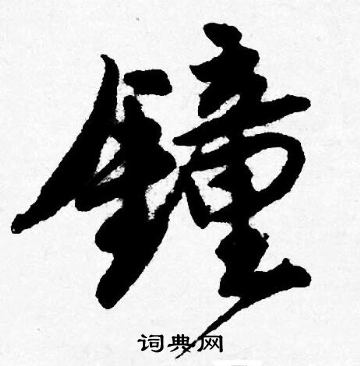 鐘
词典网